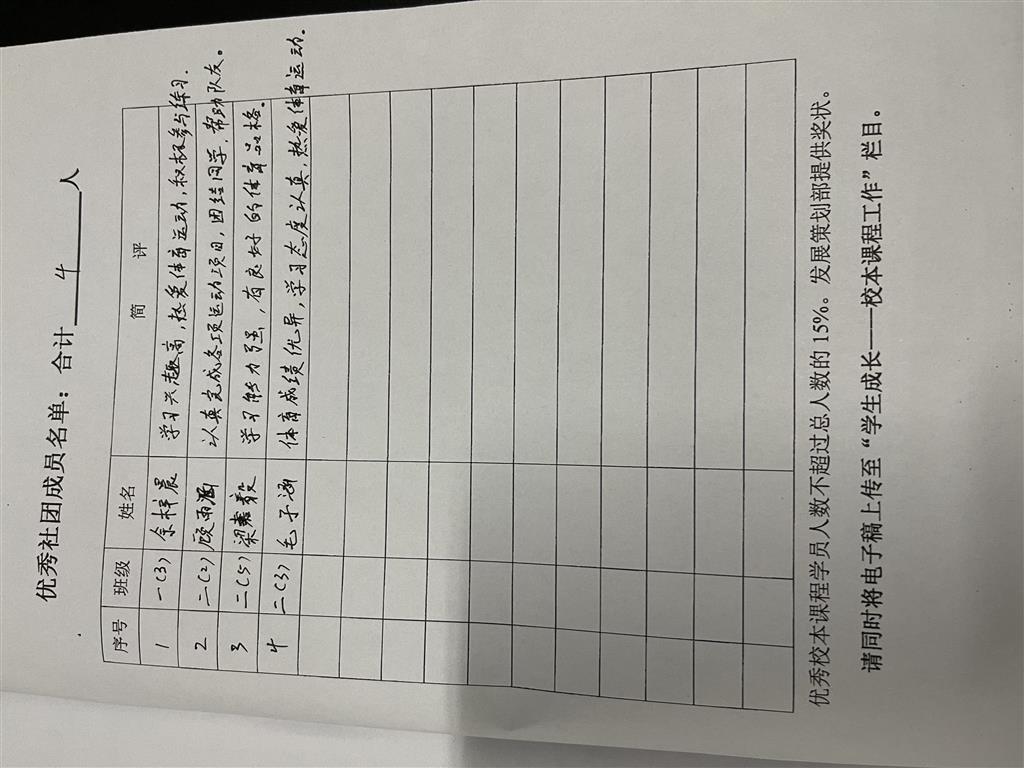 优秀社团成员名单：合计 4 人
序号 班级 姓名 简 评
1 一(3) 余梓晨 学习兴趣高，热爱体育运动，积极参与练习.
2 二(2) 顾雨涵 认真完成各项运动项目，团结同学，帮助队友。
3 二(5) 梁 毅 学习能力强，有良好的体育品格.
4 二(3) 毛子涵 体育成绩优异，学习态度认真，热爱体育运动.
优秀校本课程学员人数不超过总人数的 15%。发展策划部提供奖状。
请同时将电子稿上传至“学生成长——校本课程工作”栏目。